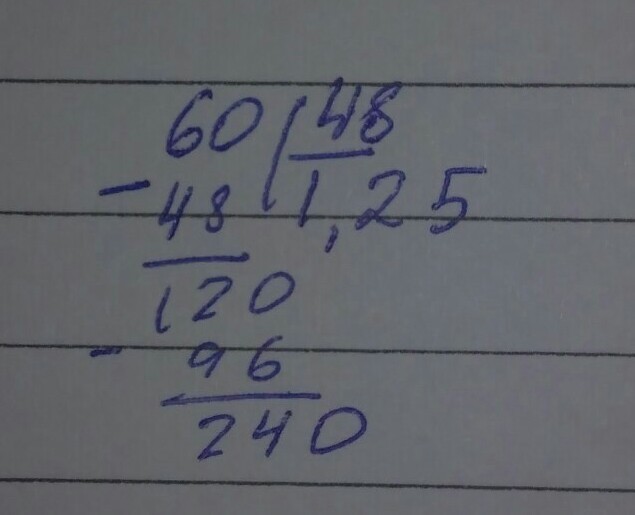 60 48
- 48 1,25
120
- 96
240